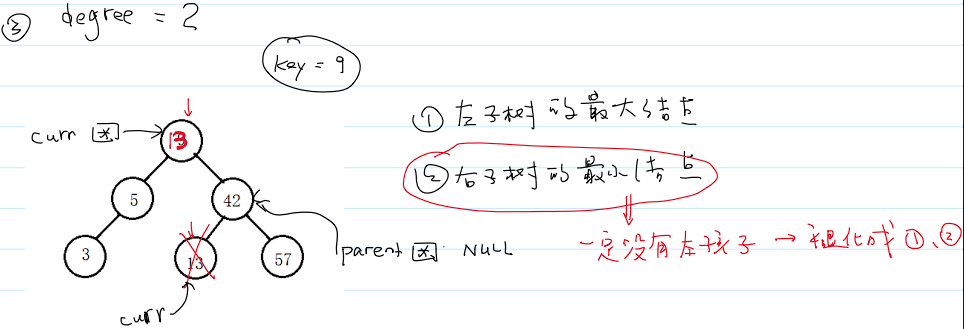 ③ degree = 2
key = 9
① 左子树的最大结点
curr
13
② 右子树的最小结点
5
42
一定没有左孩子 → 退化成①、②
parent NULL
3
13
57
curr